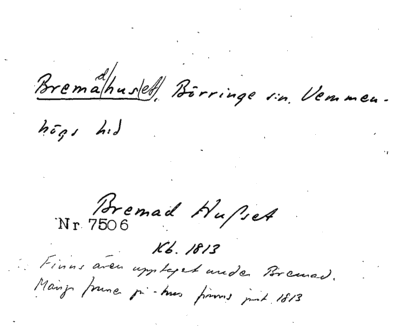 Bremad/hus/et/, Börringe sn. Vemmen-
högs hd
Bremad Hußet
Nr 7506
Kb. 1813
Finns även upptaget under Bremad.
Många finns jmt 1813